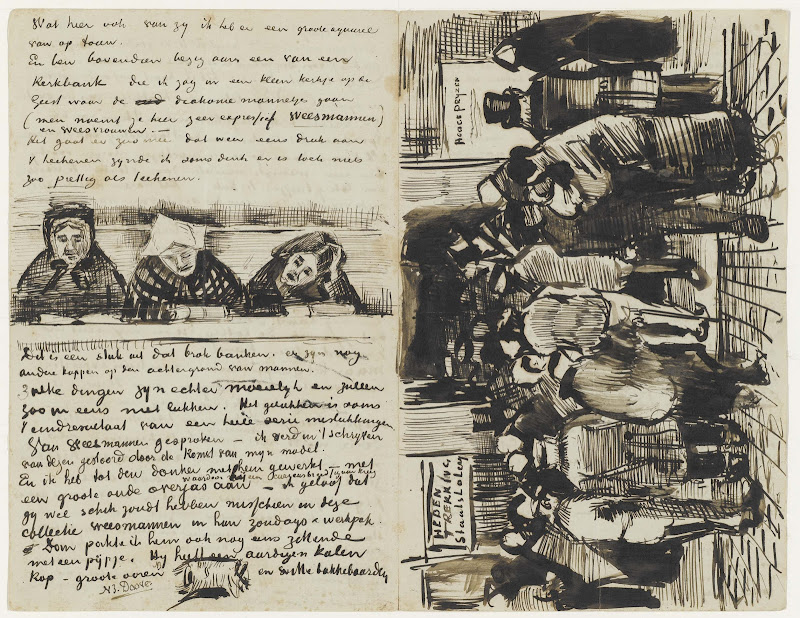 Wat hier ook van zy ik heb er een groote aquarel
van op touw.
En ben bovendien bezig aan een van een
Kerkbank die ik zag in een klein kerkje op de
Geest waar de diakonie mannetjes gaan
(men noemt ze hier zeer expressief weesmannen)
en weesvrouwen. —
Het gaat er zoo mee dat weer eens druk aan
't teekenen zynde ik soms denk er is toch niets
zoo prettig als teekenen.
Dit is een stuk uit dat brok banken. er zyn nog
andere koppen op den achtergrond van mannen.
Zulke dingen zyn echter moeielyk en zullen
zoo in eens niet lukken. Het gelukken is soms
't eindresultaat van een heele serie mislukkingen
Van weesmannen gesproken – ik werd in 't schryven
van dezen gestoord door de komst van myn model.
En ik heb tot den donker met hem gewerkt – met
waardoor hy een curieus breed figuur kreeg
een groote oude overjas aan – ik geloof dat
gy wel schik zoudt hebben misschien in deze
collectie weesmannen in hun zondags & werkpak.
Dan pakte ik hem ook nog eens zittende
met een pypje. Hy heeft een aardigen kalen
kop – groote ooren en witte bakkebaarden
NB. Dooven
PRYZEN
HEDEN
TREKKING
StaatsLotery